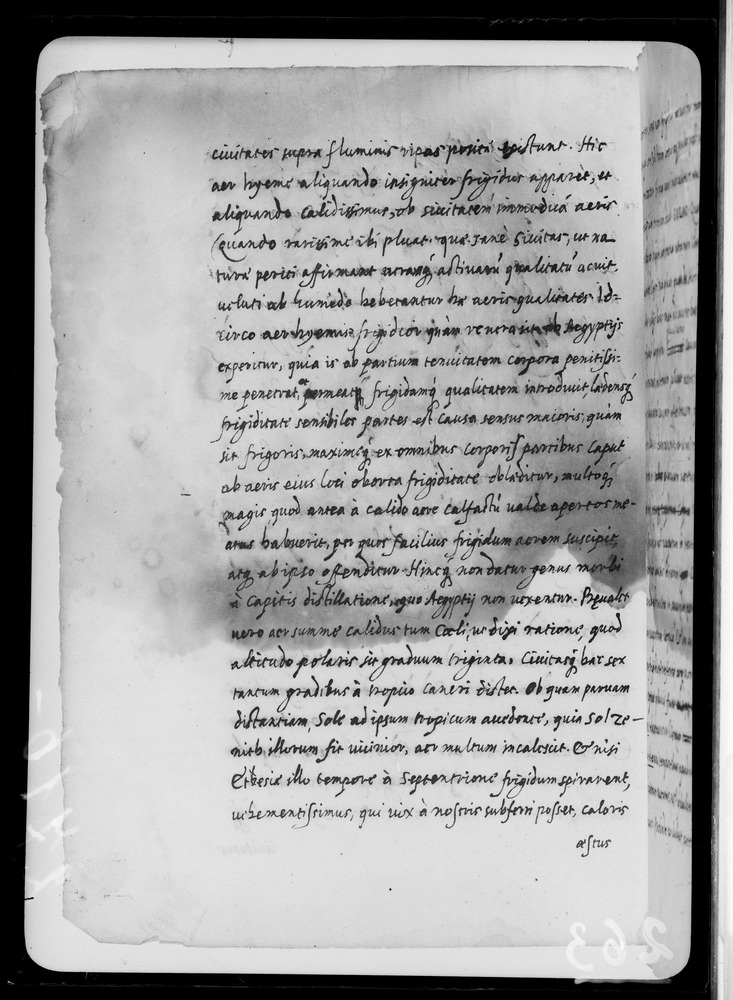 ciuitates supra fluminis ripas positæ existunt. Hic
aer hyeme aliquando insigniter frigidus apparet, et
aliquando calidissimus, ob siccitatem immodicã aeris
(quando rarissime ibi pluat. quæ sanè siccitas, ut na_
turæ periti affirmant utranq; actiuarũ qualitatũ acuit,
ueluti ab humido hebetantur hæ aeris qualitates. Id=
circo aer hyemis frigidior quàm reuera sit, ab Aegyptijs
experitur, quia is ob partium tenuitatem corpora penitissi=
me penetrat, et permeat, frigidamq; qualitatem introducit, lædensq;
frigiditate sensibiles partes est causa sensus maioris, quàm
sit frigoris, maximeq; ex omnibus corporis partibus caput
ab aeris eius loci oborta frigiditate oblæditur, multoq;
magis quod antea à calido aere calfactũ ualde apertos me-
atus habuerit, per quos facilius frigidum aerem suscipit,
atq; ab ipso offenditur. Hincq; non datur genus morbi
à capitis distillatione, quo Aegyptij non uexentur. Præualet
uero aer summe calidus tum Cœli, ut dixi ratione, quod
altitudo polaris sit graduum triginta. Ciuitasq; hæc sex
tantum gradibus à tropico cancri distet. Ob quam paruam
distantiam, Sole ad ipsum tropicum accedente, quia Sol ze-
nith illorum fit uicinior, aer multum incalescit. & nisi
Ethesiæ illo tempore à Septentrione frigidum spirarent,
uehementissimus, qui uix à nostris subferri posset, caloris
æstus
263